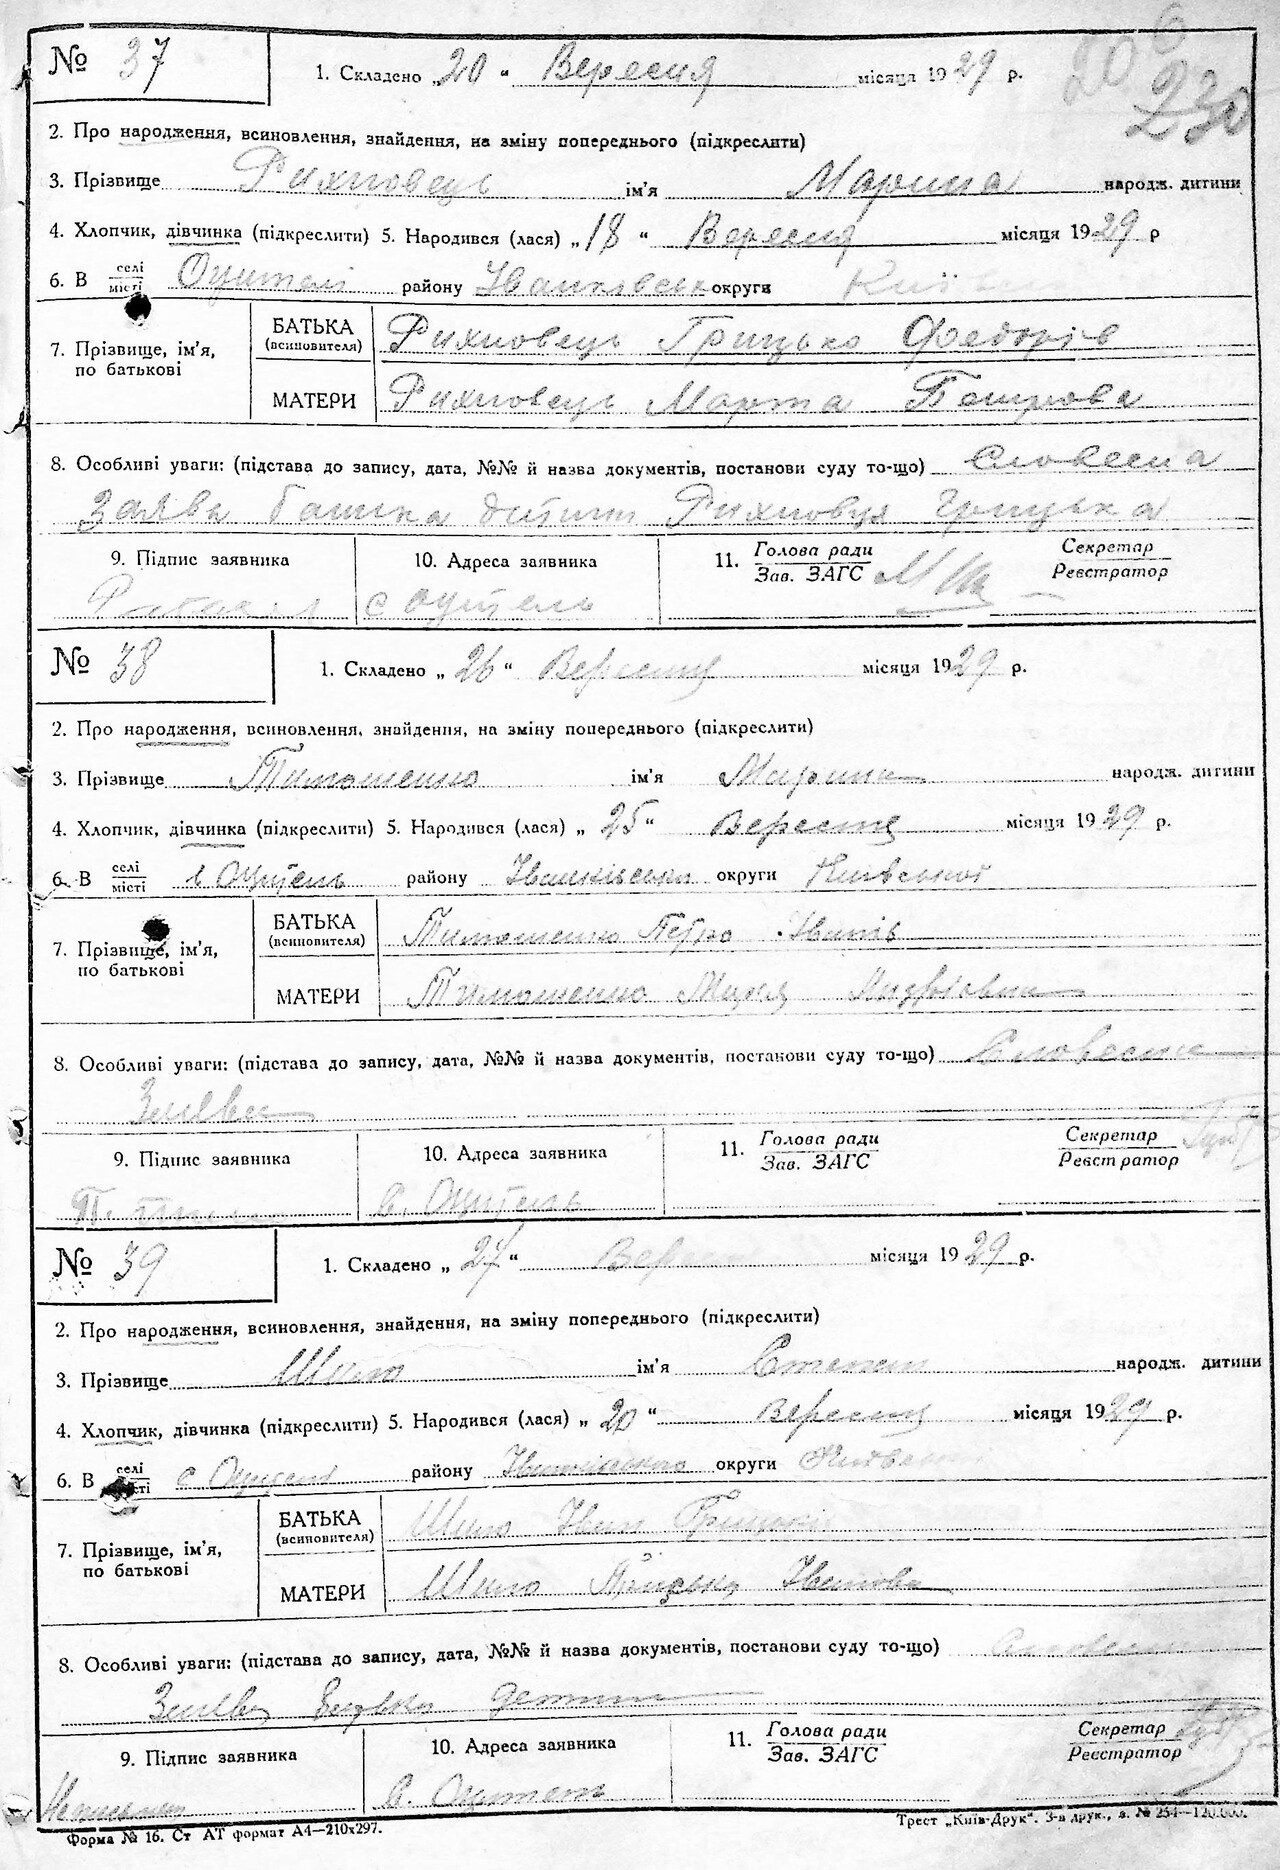 № 37
1. Складено „20“ Вересня місяця 1929 р.
206
230
2. Про народження, всиновлення, знайдення, на зміну попереднього (підкреслити)
3. Прізвище Рихновець ім'я Марина народж. дитини
4. Хлопчик, дівчинка (підкреслити) 5. Народився (лася) „18“ Вересня місяця 1929 р
6. В селі місті району Іванківськ округи Київ
7. Прізвище, ім'я, по батькові
БАТЬКА (всиновителя) Рихновець Грицько Федорів
МАТЕРИ Рихновець Марта Петрова
8. Особливі уваги: (підстава до запису, дата, №№ й назва документів, постанови суду то-що) Словесна
Заява батька дитини Рихновця Грицька
9. Підпис заявника 10. Адреса заявника 11. Голова ради Зав. ЗАГС Секретар Реєстратор
с
№ 38
1. Складено „26“ Вересня місяця 1929 р.
2. Про народження, всиновлення, знайдення, на зміну попереднього (підкреслити)
3. Прізвище Тимошенко ім'я Марина народж. дитини
4. Хлопчик, дівчинка (підкреслити) 5. Народився (лася) „25“ Вересня місяця 1929 р.
6. В селі місті с Оцитель району Іванківськ округи Київської
7. Прізвище, ім'я, по батькові
БАТЬКА (всиновителя) Тимошенко Петро Іванів
МАТЕРИ Тимошенко Марія
8. Особливі уваги: (підстава до запису, дата, №№ й назва документів, постанови суду то-що) Словесна
Заява
9. Підпис заявника 10. Адреса заявника 11. Голова ради Зав. ЗАГС Секретар Реєстратор
с. Оцитель
№ 39
1. Складено „27“ Вересня місяця 1929 р.
2. Про народження, всиновлення, знайдення, на зміну попереднього (підкреслити)
3. Прізвище Шило ім'я Степан народж. дитини
4. Хлопчик, дівчинка (підкреслити) 5. Народився (лася) „20“ Вересня місяця 1929 р.
6. В селі місті с району Іванківського округи Київськ
7. Прізвище, ім'я, по батькові
БАТЬКА (всиновителя) Шило Іван Грицьків
МАТЕРИ Шило Іванова
8. Особливі уваги: (підстава до запису, дата, №№ й назва документів, постанови суду то-що) Словесна
Заява батька дитини
9. Підпис заявника 10. Адреса заявника 11. Голова ради Зав. ЗАГС Секретар Реєстратор
Неписьмен с. Оцитель
Форма № 16. Ст АТ формат А4—210х297.
Трест „Київ-Друк“. 3-я друк., з. № 254—120.000.